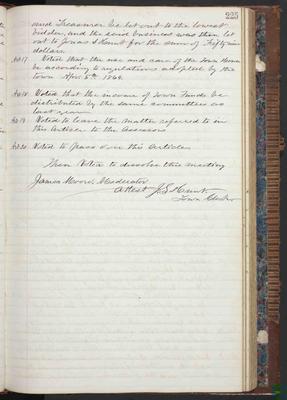 225
and Treasurer be let out to the lowest
bidder, and the said business was then let
out to Jonas S Hunt for the sum of Fifty nine
dollars.
Art 17 Voted that the use and care of the Town House
be according to regulations adopted by the
town Apr. 5th 1864.
Art 18 Voted that the income of Town Funds be
distributed by the same committees as
last year.
Art 19 Voted to leave the matter referred to in
this Article to the Assessors
Art 20 Voted to pass over this Article
Then Voted to dissolve this meeting
James Moore, Moderator
Attest J. S. Hunt,
Town Clerk